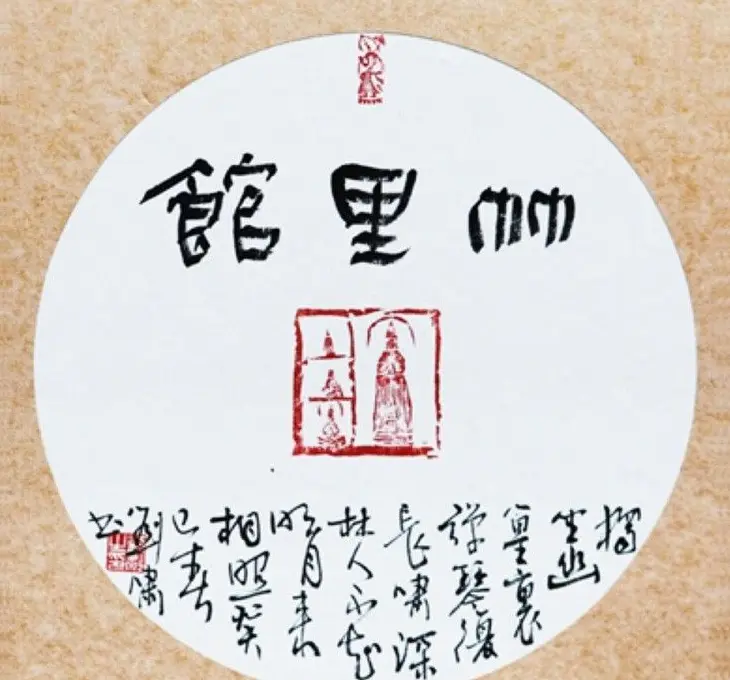 竹里館
獨
坐幽
篁裏
彈琴復
長嘯深
林人不知
明月來
相照癸
巳春
劉
书